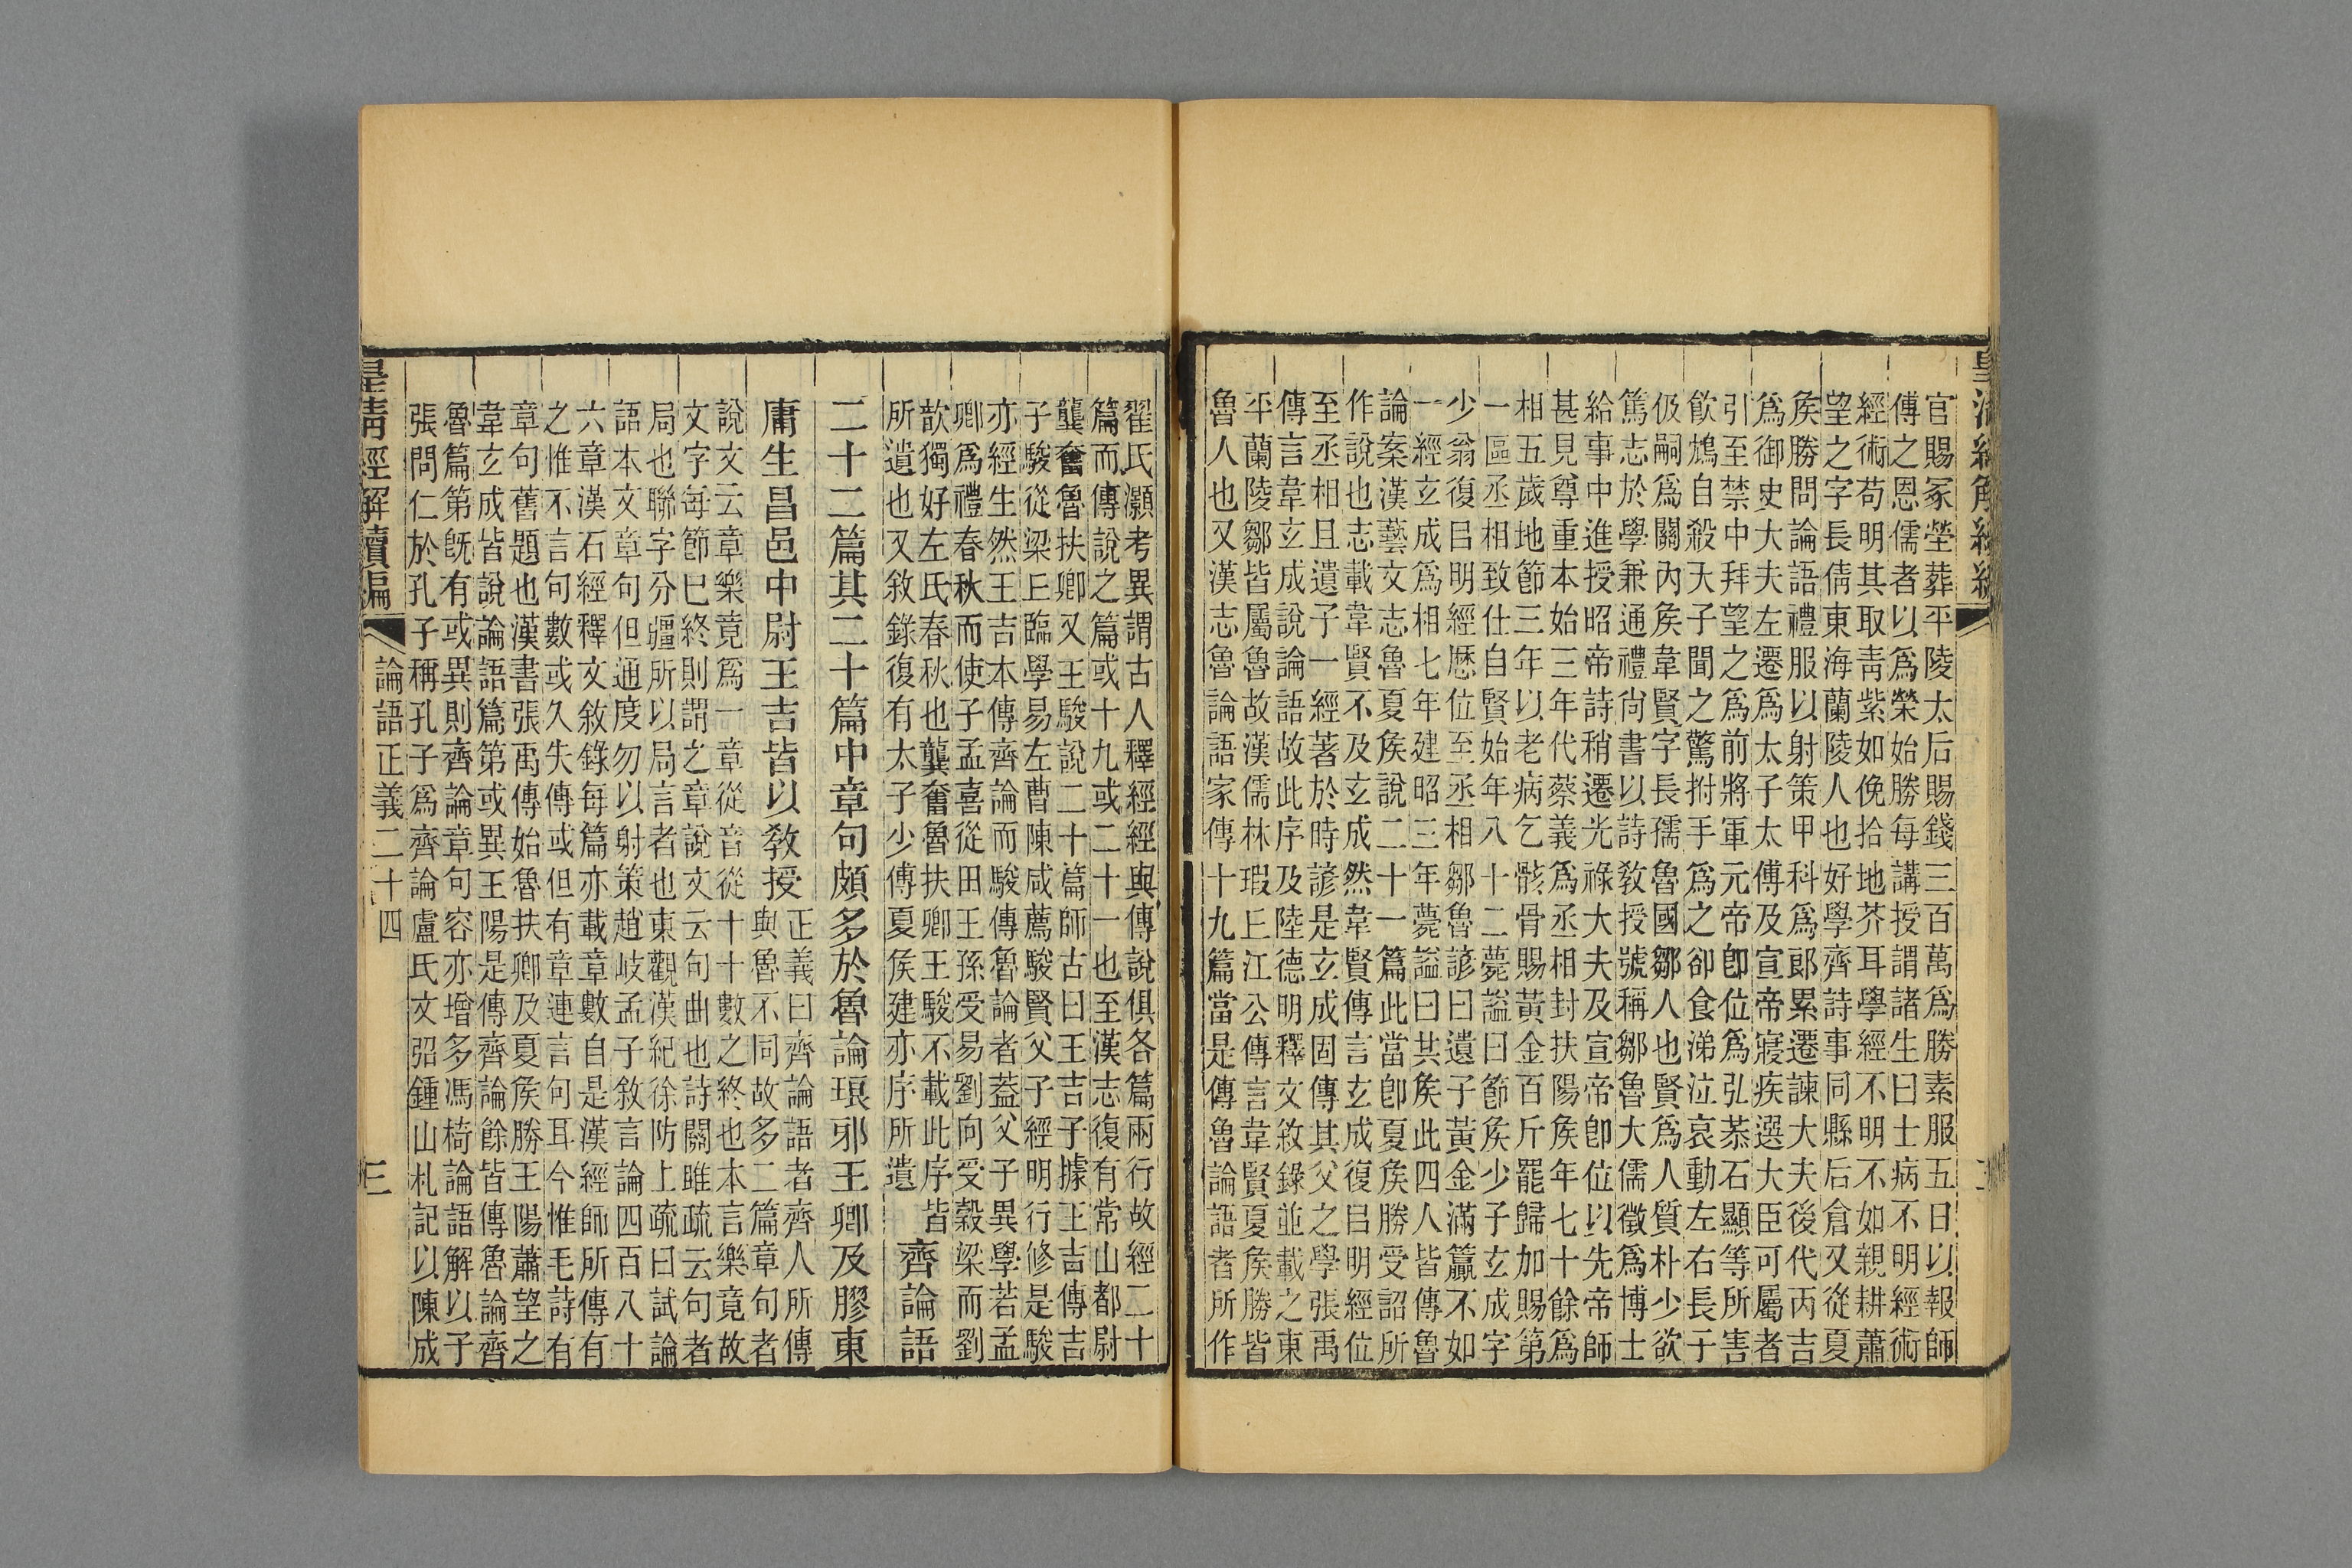 官賜冢塋葬平陵太后賜錢三百萬爲勝素服五日以報師
傅之恩儒者以爲榮始勝每講授謂諸生曰士病不明經術
經術苟明其取靑紫如俛拾地芥耳學經不明不如親耕蕭
望之字長倩東海蘭陵人也好學齊詩事同縣后倉又從夏
矦勝問論語禮服以射策甲科爲郞累遷諫大夫後代丙吉
爲御史大夫左遷爲太子太傅及宣帝寢疾選大臣可屬者
引至禁中拜望之爲前將軍元帝卽位爲弘恭石顯等所害
飮鴆自殺天子聞之驚拊手爲之卻食涕泣哀動左右長子
伋嗣爲關內矦韋賢字長孺魯國鄒人也賢爲人質朴少欲
篤志於學兼通禮尙書以詩敎授號稱鄒魯大儒徵爲博士
給事中進授昭帝詩稍遷光祿大夫及宣帝卽位以先帝師
甚見尊重本始三年代蔡義爲丞相封扶陽矦年七十餘爲
相五歲地節三年以老病乞骸骨賜黃金百斤罷歸加賜第
一區丞相致仕自賢始年八十二薨謚曰節矦少子玄成字
少翁復㠯明經歷位至丞相鄒魯諺曰遺子黃金滿籯不如
一經玄成爲相七年建昭三年薨謚曰共矦此四人皆傳魯
論案漢藝文志魯夏矦說二十一篇此當卽夏矦勝受詔所
作說也志載韋賢不及玄成然韋賢傳言玄成復㠯明經位
至丞相且遺子一經著於時諺是玄成固傳其父之學張禹
傳言韋玄成說論語故此序及陸德明釋文敘錄並載之東
平蘭陵鄒皆屬魯故漢儒林瑕丘江公傳言韋賢夏矦勝皆
魯人也又漢志魯論語家傳十九篇當是傳魯論語者所作
翟氏灝考異謂古人釋經經與傳說俱各篇兩行故經二十
篇而傳說之篇或十九或二十一也至漢志復有常山都尉
龔奮魯扶卿又王駿說二十篇師古曰王吉子據王吉傳吉
子駿從梁丘臨學易左曹陳咸薦駿賢父子經明行修是駿
亦經生然王吉本傳齊論而駿傳魯論者葢父子異學若孟
卿爲禮春秋而使子孟喜從田王孫受易劉向受穀梁而劉
歆獨好左氏春秋也龔奮魯扶卿王駿不載此序皆
所遺也又敘錄復有太子少傅夏矦建亦序所遺
齊論語
二十二篇其二十篇中章句頗多於魯論琅邪王卿及膠東
庸生昌邑中尉王吉皆以敎授
正義曰齊論語者齊人所傳
與魯不同故多二篇章句者
說文云章樂竟爲一章從音從十十數之終也本言樂竟故
文字每節已終則謂之章說文云句曲也詩關雎疏云句者
局也聯字分疆所以局言者也東觀漢紀徐防上疏曰試論
語本文章句但通度勿以射策趙岐孟子敘言論四百八十
六章漢石經釋文敘錄每篇亦載章數自是漢經師所傳有
之惟不言句數或久失傳或但有章連言句耳今惟毛詩有
章句舊題也漢書張禹傳始魯扶卿及夏矦勝王陽蕭望之
韋玄成皆說論語篇第或異王陽是傳齊論餘皆傳魯論齊
魯篇第旣有或異則齊論章句容亦增多馮椅論語解以子
張問仁於孔子稱孔子爲齊論盧氏文弨鍾山札記以陳成
皇淸經解續編
論語正義二十四
三